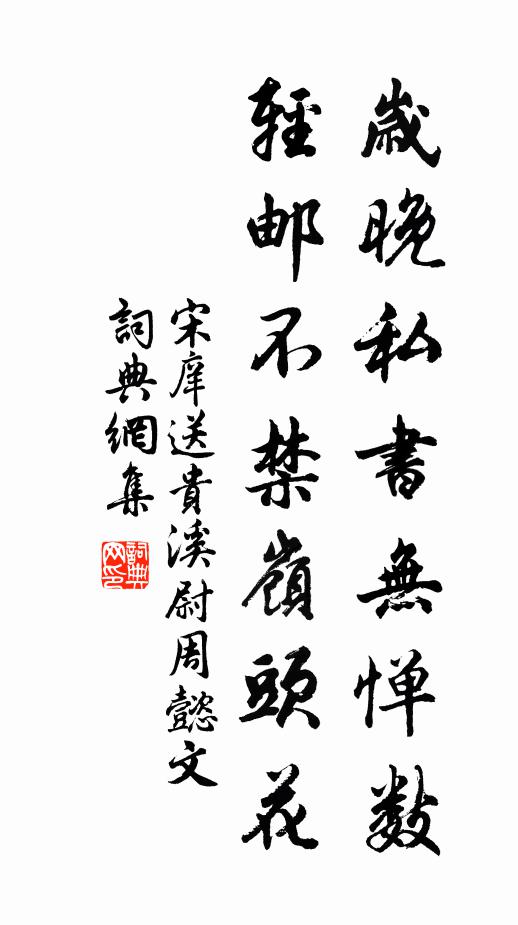 歲晚私書無惮數
輕邮不禁嶺頭花
宋庠送貴溪尉周懿文
詞典網集
詞典网印